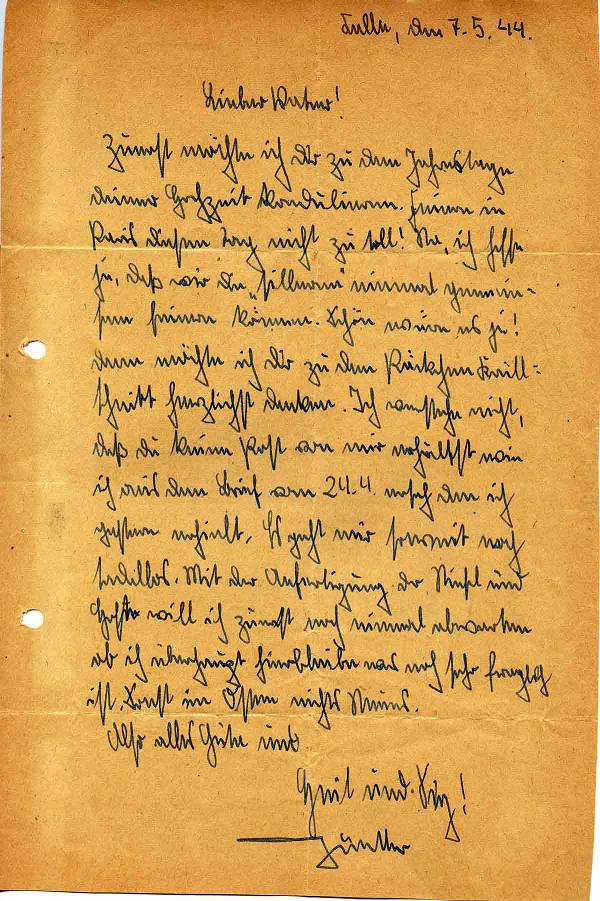 Tulle, den 7.5.44.
Lieber Vater!
Zunächst möchte ich Dir zu dem Jahrestage
deiner Hochzeit kondulieren. Feiern in
Paris diesen Tag nicht zu toll! Na, ich hoffe
ja, daß wir die „silberne" einmal gemein-
sam feiern können. Schön wäre es ja!
dann möchte ich Dir zu dem Päckchen
herzlichst danken. Ich verstehe nicht,
daß du keine Post von mir erhältst wie
ich aus dem Brief vom 24.4. ersah den ich
gestern erhielt. Es geht mir soweit noch
tadellos. Mit der Anfertigung der Stiefel und
will ich zunächst noch einmal abwarten
ob ich überhaupt hierbleibe was noch sehr fraglich
ist. Sonst im Osten nichts Neues.
Also alles Gute und
Heil und Sieg!
Günther